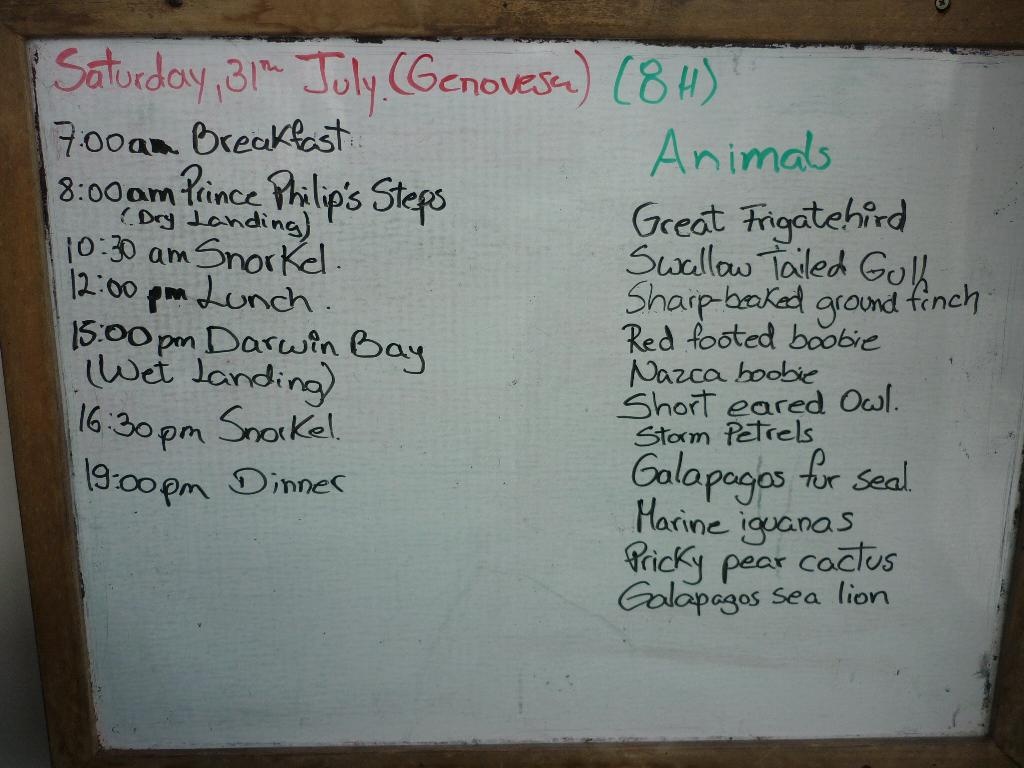 Saturday, 31th July. (Genovesa) (8H)
7:00am Breakfast
8:00am Prince Philip's Steps
(Dry Landing)
10:30 am Snorkel.
12:00 pm Lunch.
15:00pm Darwin Bay
(Wet Landing)
16:30pm Snorkel.
19:00pm Dinner
Animals
Great Frigatebird
Swallow Tailed Gull
Sharp-beaked ground finch
Red footed boobie
Nazca boobie
Short eared Owl.
Storm Petrels
Galapagos fur seal.
Marine iguanas
Pricky pear cactus
Galapagos sea lion